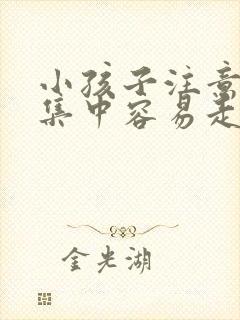 小孩子注意
集中容易走
金光湖